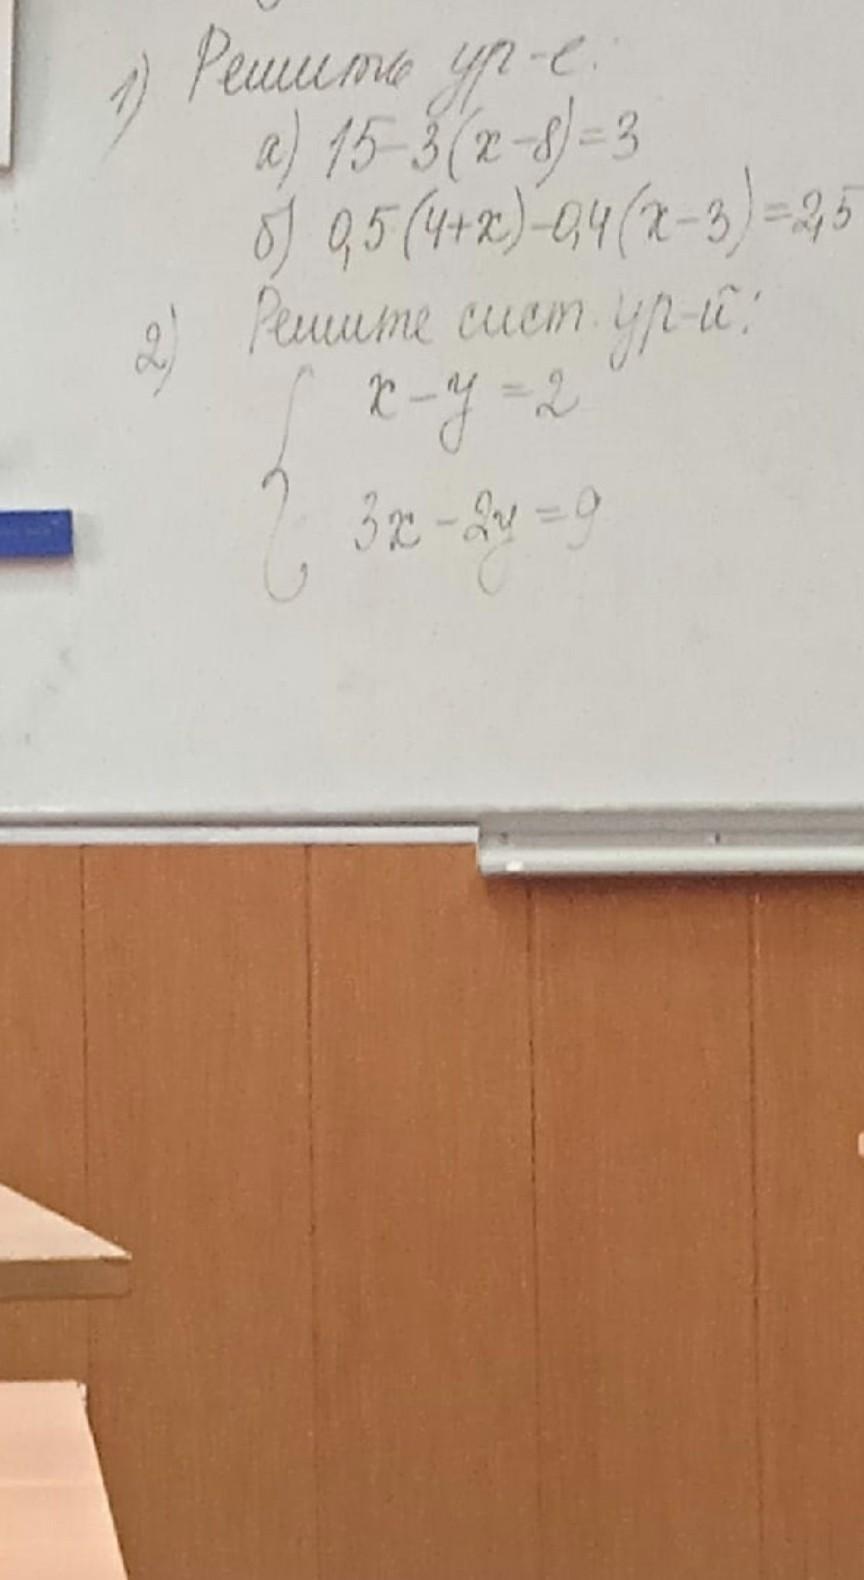 1) Решить ур-е:
а) 15-3(x-8)=3
б) 0,5(4+x)-0,4(x-3)=2,5
2) Решите сист. ур-й:
{ x-y=2
3x-2y=9